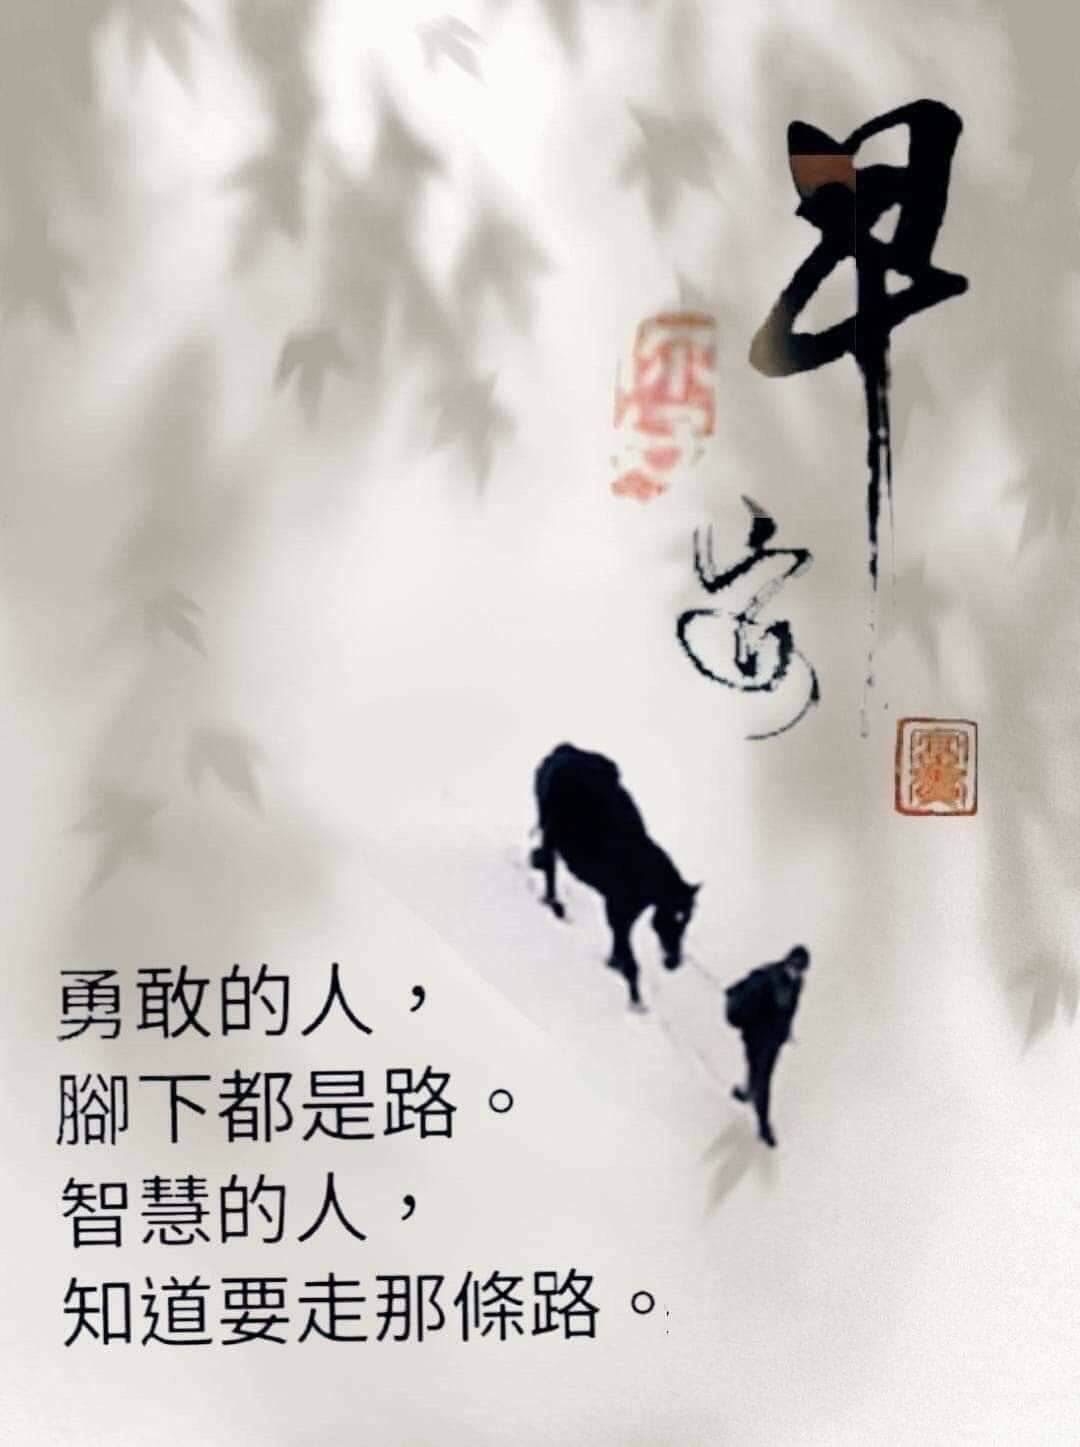 早安
勇敢的人，
腳下都是路。
智慧的人，
知道要走那條路。